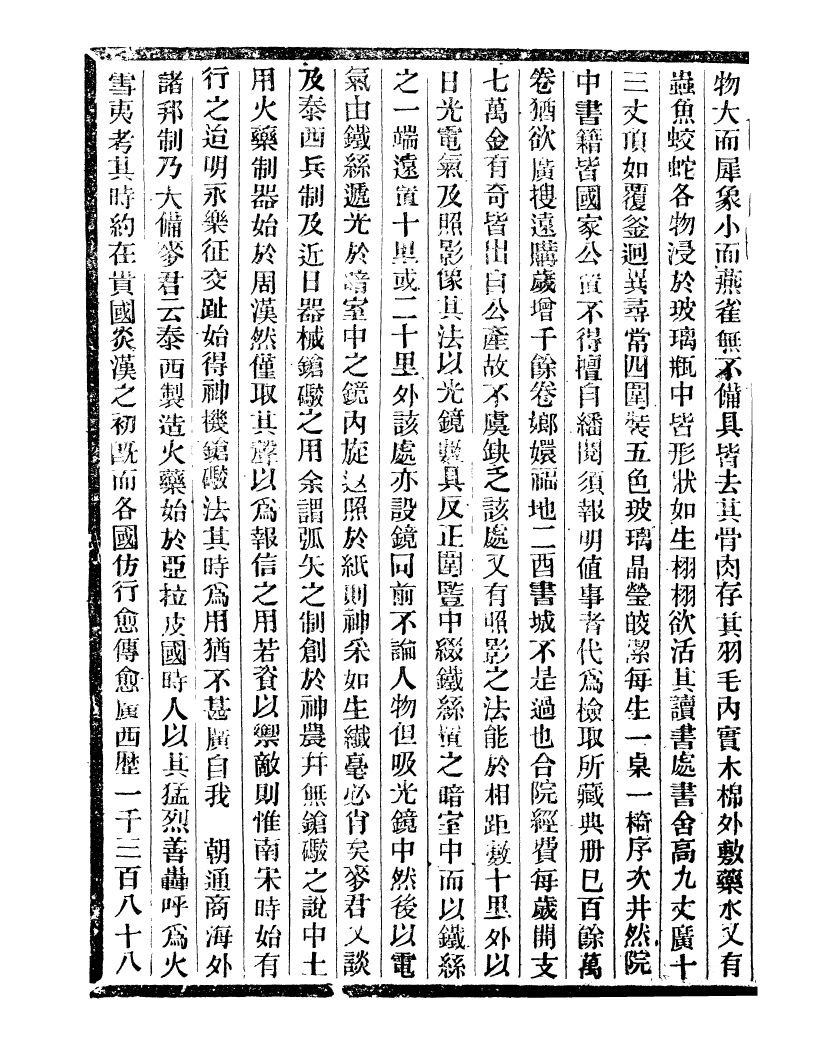 物大而犀象小而燕雀無不備具皆去其骨肉存其羽毛內實木棉外敷藥水又有
蟲魚蛟蛇各物浸於玻璃瓶中皆形狀如生栩栩欲活其讀書處書舍高九丈廣十
三丈頂如覆釜迥異尋常四圍裝五色玻璃晶瑩皎潔每生一桌一椅序次井然院
中書籍皆國家公置不得擅自繙閱須報明值事者代爲檢取所藏典册已百餘萬
卷猶欲廣搜遠購歲增千餘卷嫏嬛福地二酉書城不是過也合院經費每歲開支
七萬金有奇皆出自公產故不虞缺乏該處又有照影之法能於相距數十里外以
日光電氣及照影像其法以光鏡數具反正圍豎中綴鐵絲置之暗室中而以鐵絲
之一端遠置十里或二十里外該處亦設鏡同前不論人物但吸光鏡中然後以電
氣由鐵絲遞光於暗室中之鏡內旋返照於紙則神采如生纖毫必肖矣麥君又談
及泰西兵制及近日器械鎗礮之用余謂弧矢之制創於神農幷無鎗礮之說中土
用火藥制器始於周漢然僅取其聲以爲報信之用若資以禦敵則惟南宋時始有
行之迨明永樂征交趾始得神機鎗礮法其時爲用猶不甚廣自我　朝通商海外
諸邦制乃大備麥君云泰西製造火藥始於亞拉皮國時人以其猛烈善轟呼爲火
雪夷考其時約在貴國炎漢之初旣而各國仿行愈傳愈廣西歷一千三百八十八